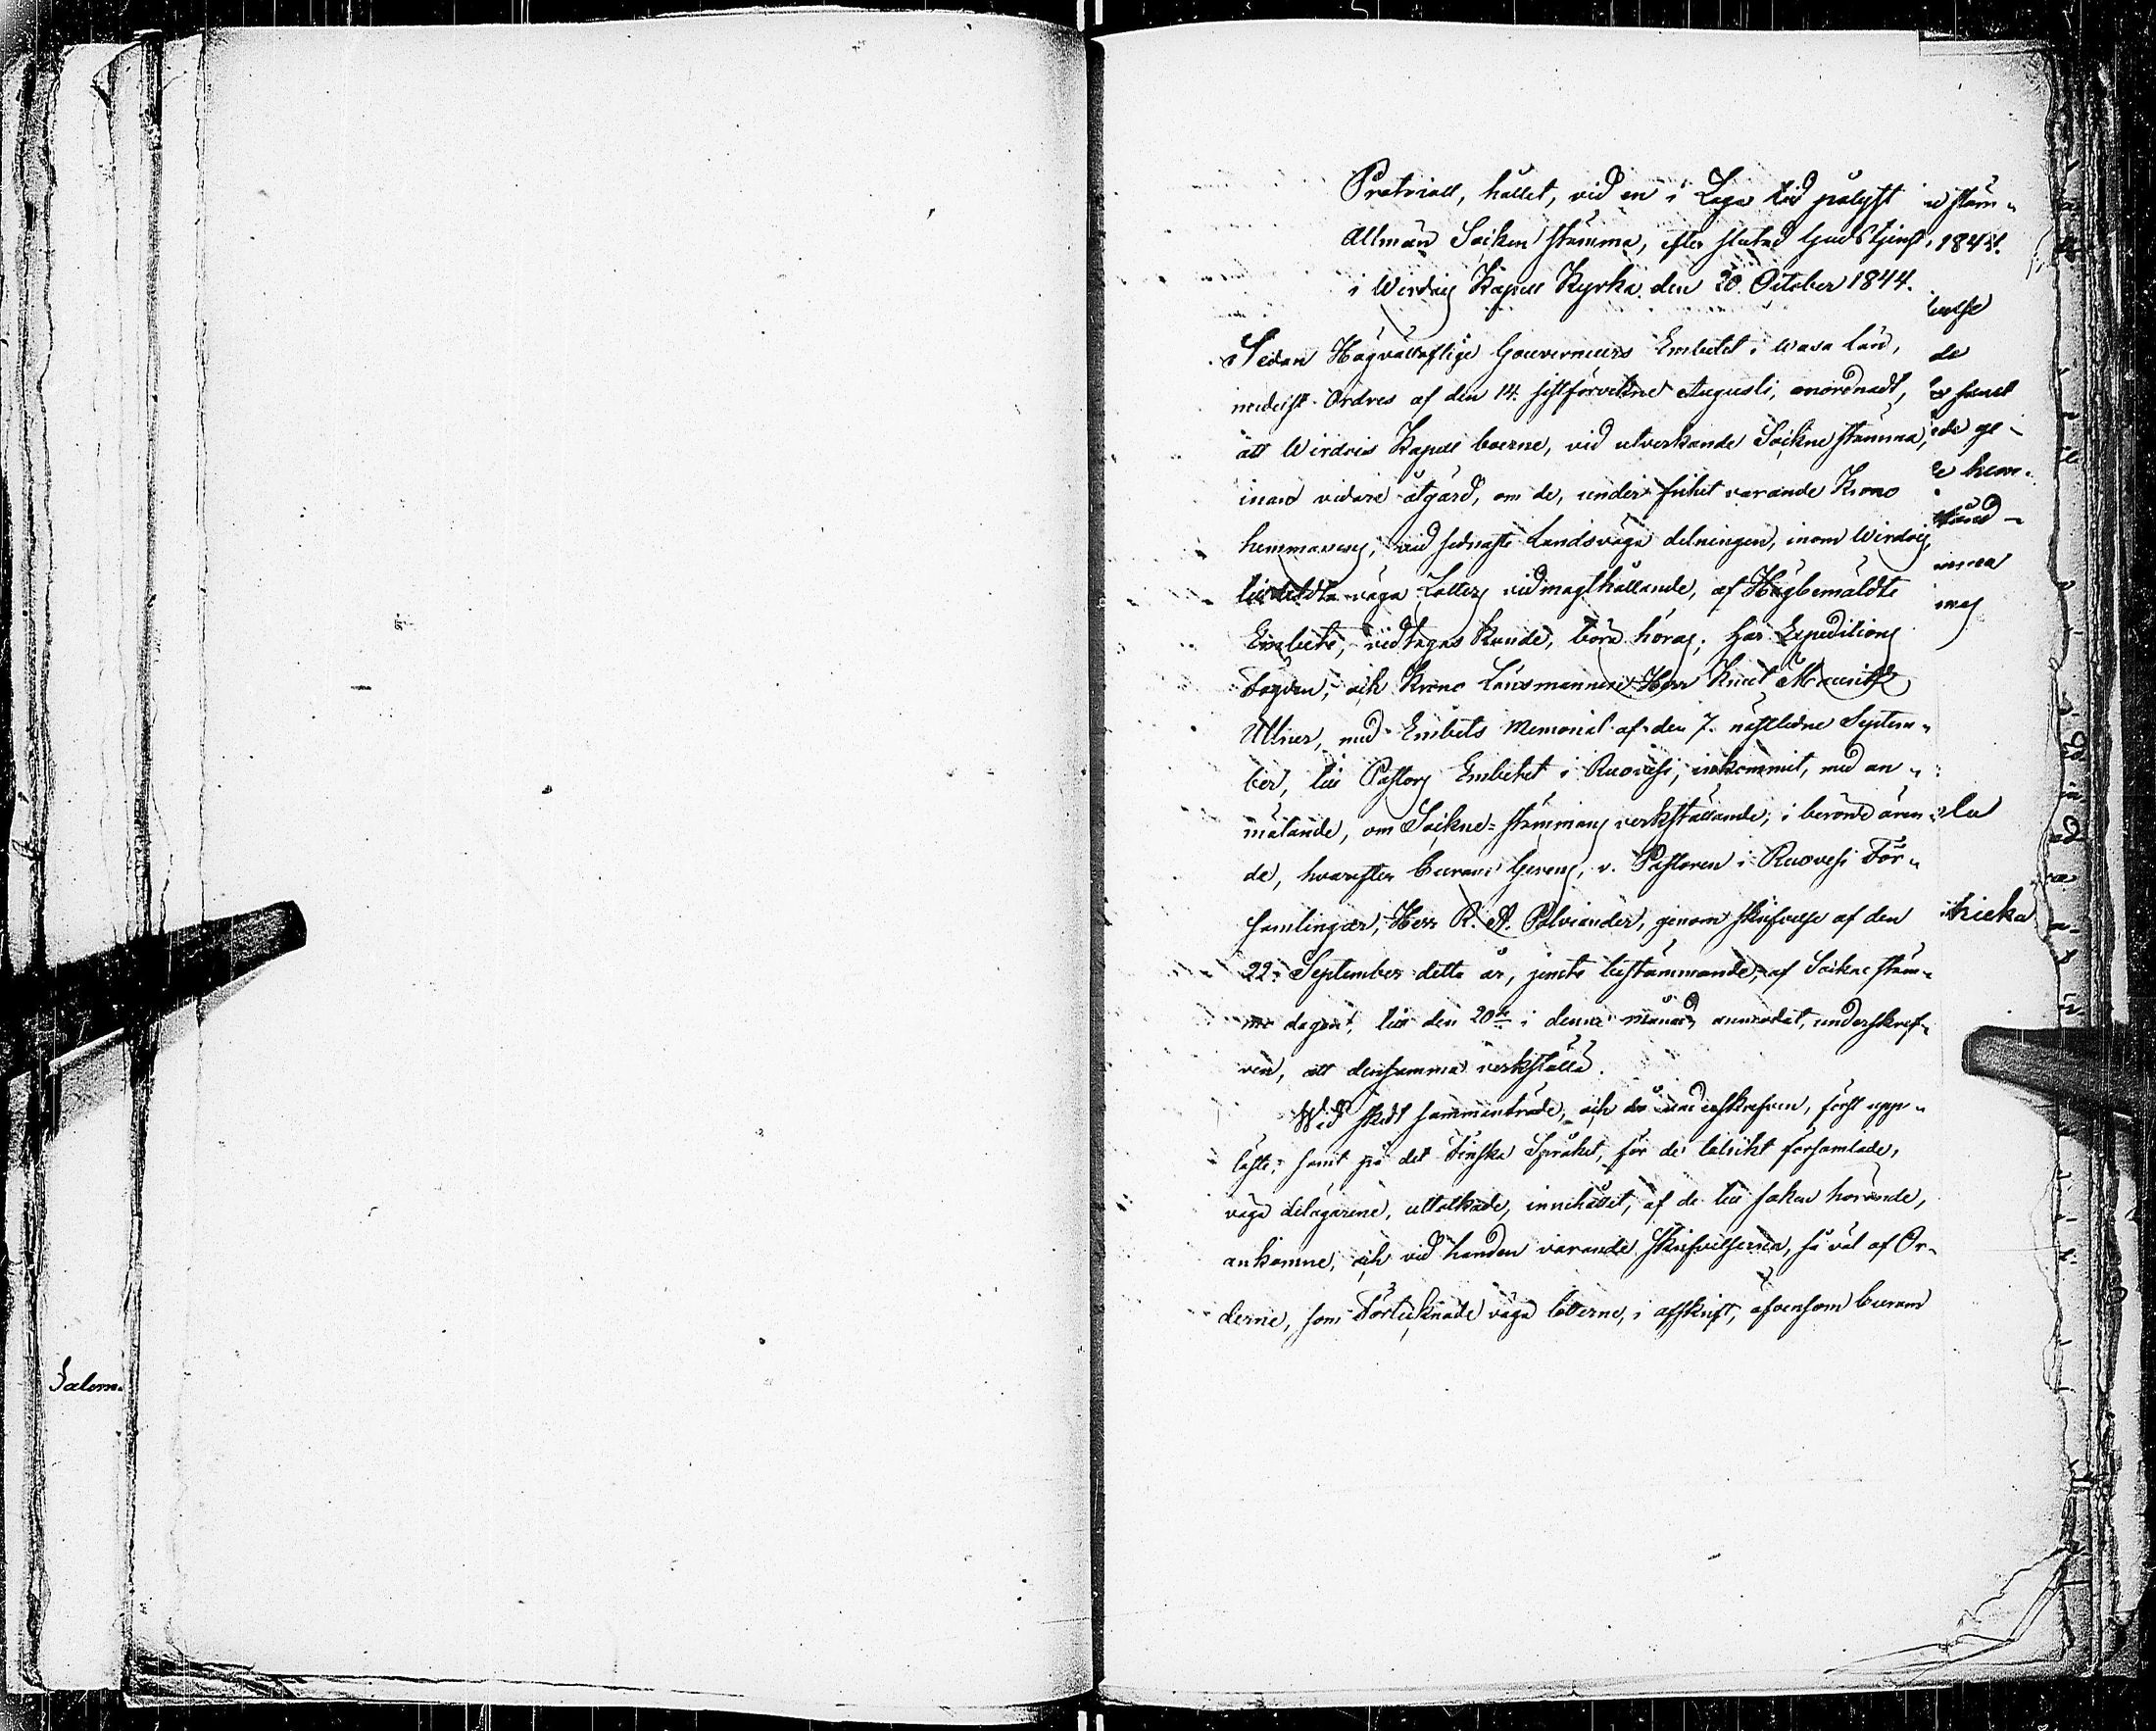 Protocoll, hållet, vid en i Laga tid pålyst
Allmän Socken stämma, efter slutad Gudstjenst,
i Wirdois Kapell Kyrka den 20. October 1844.
Sedan Högvällofliga Gouverneurs Embetet i Wasa län,
medelst Ordres af den 14. sistförvikne Augusti, anordnadt,
att Wirdois Kapell boerne, vid utverkande Sockne stämma,
innan vidare åtgärd, om de, under frihet varande Krono
hemmanens, vid sednaste Landsväga delningen, inom Wirdois,
tilldelta väga Lotters vidmagthållande, af Högbemäldte
Embete, vidtagas kunde, böra höras; har Expeditions
Fogden, och Krono Länsmannen Herr Knut Mauritz
Ullner, med Embets Memorial af den 7. nästledne Septem-
ber, till Pastors Embetet i Ruovesi, inkommit, med an-
mälande, om Sockne-stämmans verkställande, i berörde ären-
de, hvarefter v. Pastoren i Ruovesi För-
samlingar, Herr R. A. Polviander, genom skrifvelse af den
22. September dette år, jemte bestämmande, af Sockne stäm-
mo dagen, till den 20de i denne månad, anmodat, underskref-
ven, att densamma verkställa.
Wid skedt sammanträde, och då underskrefven, först upp-
läste, samt på det Finska Språket, för de talrikt församlade,
väga delägarene, uttolkade, innehållet, af de till saken hörande,
ankomne, och vid handen varande skrifvelserna, så väl af Or-
derne, som Förtecknade väga lotterne, i afskrift, äfvensom
stäm-
1844.
velse
de
ge-
hem-
ricka
Salom.